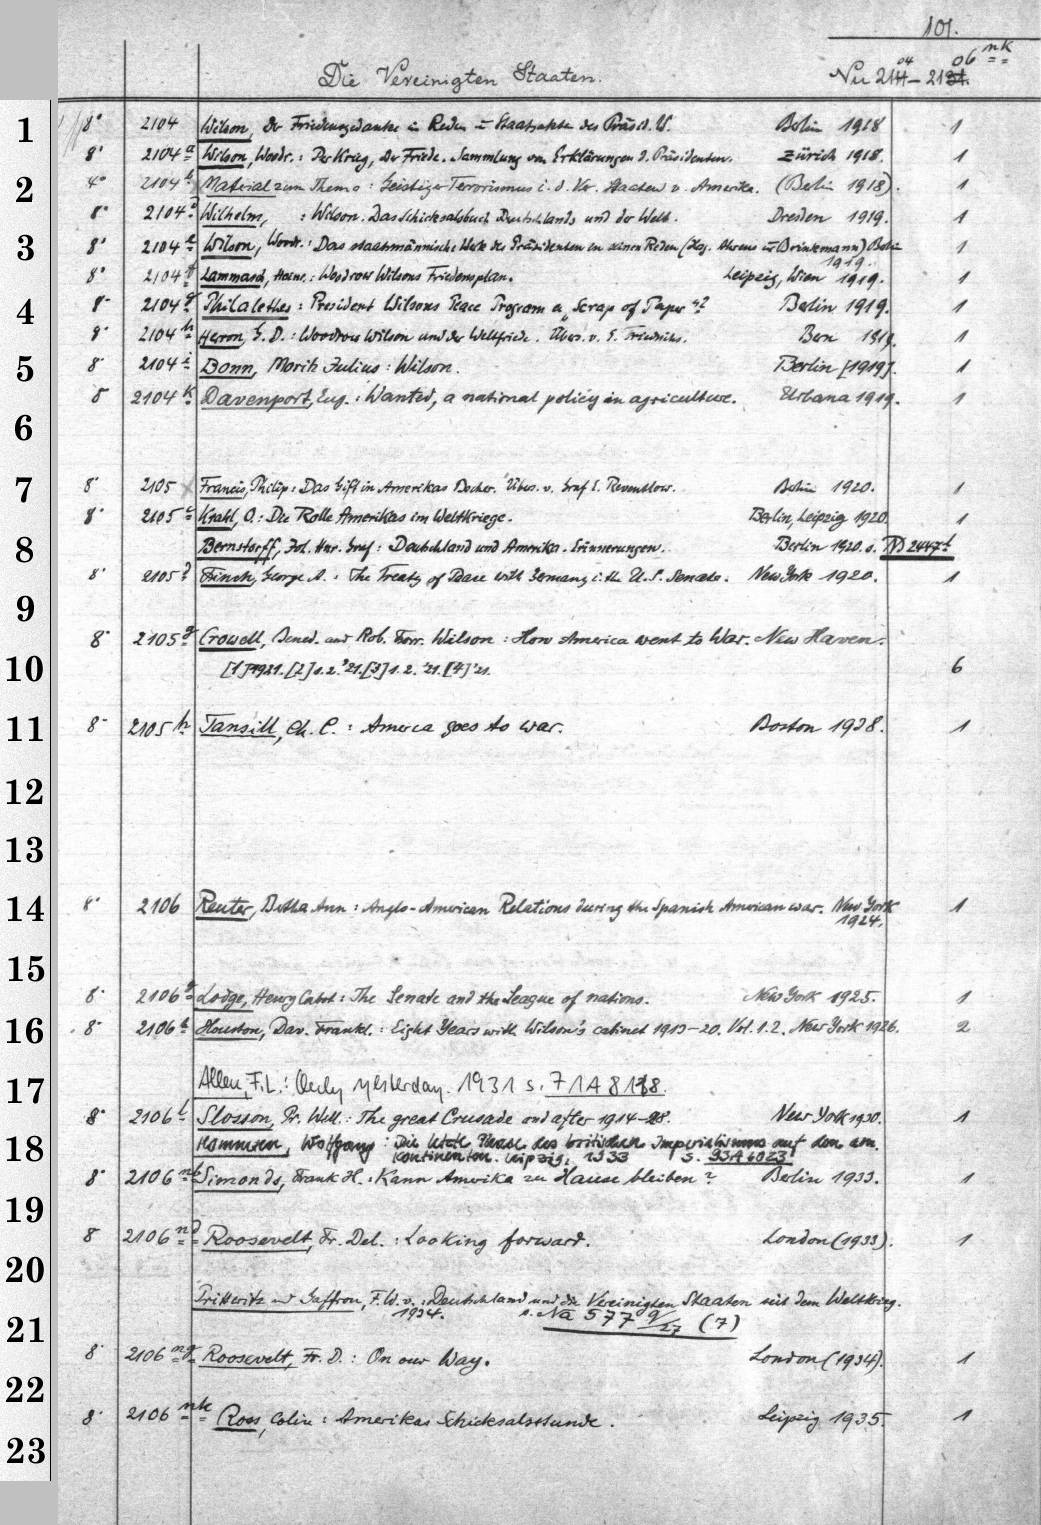 101.
Die Vereinigten Staaten. Nu 2104 - 2106 nk
1 8° 2104 Wilson, Der Friedensgedanke in Reden u. Staatsakten des Präsid. W. Berlin 1918 1
8° 2104 a Wilson, Woodr.: Der Krieg, Der Friede. Sammlung von Erklärungen d. Präsidenten. Zürich 1918. 1
2 4° 2104 b Material zum Thema: Geistiger Terrorismus i. d. Ver. Staaten v. Amerika. (Berlin 1918). 1
8° 2104 d Wilhelm, : Wilson. Das Schicksalsbuch Deutschlands und der Welt. Dresden 1919. 1
3 8° 2104 e Wilson, Woodr.: Das staatsmännische Werk des Präsidenten in seinen Reden (Hsg. Ahrens u. Brinkmann) Berlin 1
1919.
8° 2104 f Lammasch, Heinr.: Woodrow Wilsons Friedensplan. Leipzig, Wien 1919. 1
4 8° 2104 g Philalethes: President Wilsons Peace Program a „Scrap of Paper“? Berlin 1919. 1
8° 2104 h Herron, G. D.: Woodrow Wilson und der Weltfriede. Übers. v. E. Friedrichs. Bern 1919. 1
5 8° 2104 i Bonn, Moritz Julius: Wilson. Berlin [1919]. 1
8 2104 k Davenport, Eug.: Wanted, a national policy in agriculture. Urbana 1919. 1
6
7 8° 2105 Francis, Philip: Das Gift in Amerikas Becher. Übers. v. Graf E. Reventlow. Berlin 1920. 1
8° 2105 c Krahl, O.: Die Rolle Amerikas im Weltkriege. Berlin, Leipzig 1920. 1
8 Bernstorff, Joh. Hnr. Graf: Deutschland und Amerika. Erinnerungen. Berlin 1920. s.
8° 2105 d Finch, George A.: The Treaty of Peace with Germany i. the U.S. Senate. New York 1920. 1
9
8° 2105 g Crowell, Bened. and Rob. Forr. Wilson: How America went to War. New Haven.
10 [1] 1921. [2] 1. 2. '21. [3] 1. 2. '21. [4] '21. 6
11 8° 2105 h Tansill, Ch. C.: America goes to war. Boston 1938. 1
12
13
14 8° 2106 Reuter, Bertha Ann: Anglo-American Relations during the Spanish American war. New York 1
1924.
15
8° 2106 g Lodge, Henry Cabot: The Senate and the League of nations. New York 1925. 1
16 8° 2106 h Houston, Dav. Frankl.: Eight Years with Wilson's cabinet 1913-20. Vol. 1. 2. New York 1926. 2
17 Allen, F. L.: Only yesterday. 1931 s. 71 A
8° 2106 l Slosson, Pr. Will.: The great Crusade and after 1914-28. New York 1930. 1
18 Hammann, Wolfgang: Die letzte Phase des britischen Imperialismus auf dem am.
Kontinenten. Leipzig, 1933 s. 93A6023
8° 2106 nb Simonds, Frank H.: Kann Amerika zu Hause bleiben? Berlin 1933. 1
19
8 2106 nd Roosevelt, Fr. Del.: Looking forward. London (1933). 1
20
Prittwitz und Gaffron, F. W. v.: Deutschland und die Vereinigten Staaten seit dem Weltkrieg.
21 1934. s. Na 577 g/27 (7)
8° 2106 ng Roosevelt, Fr. D.: On our Way. London (1934). 1
22
8° 2106 nk Ross, Colin: Amerikas Schicksalsstunde. Leipzig 1935. 1
23